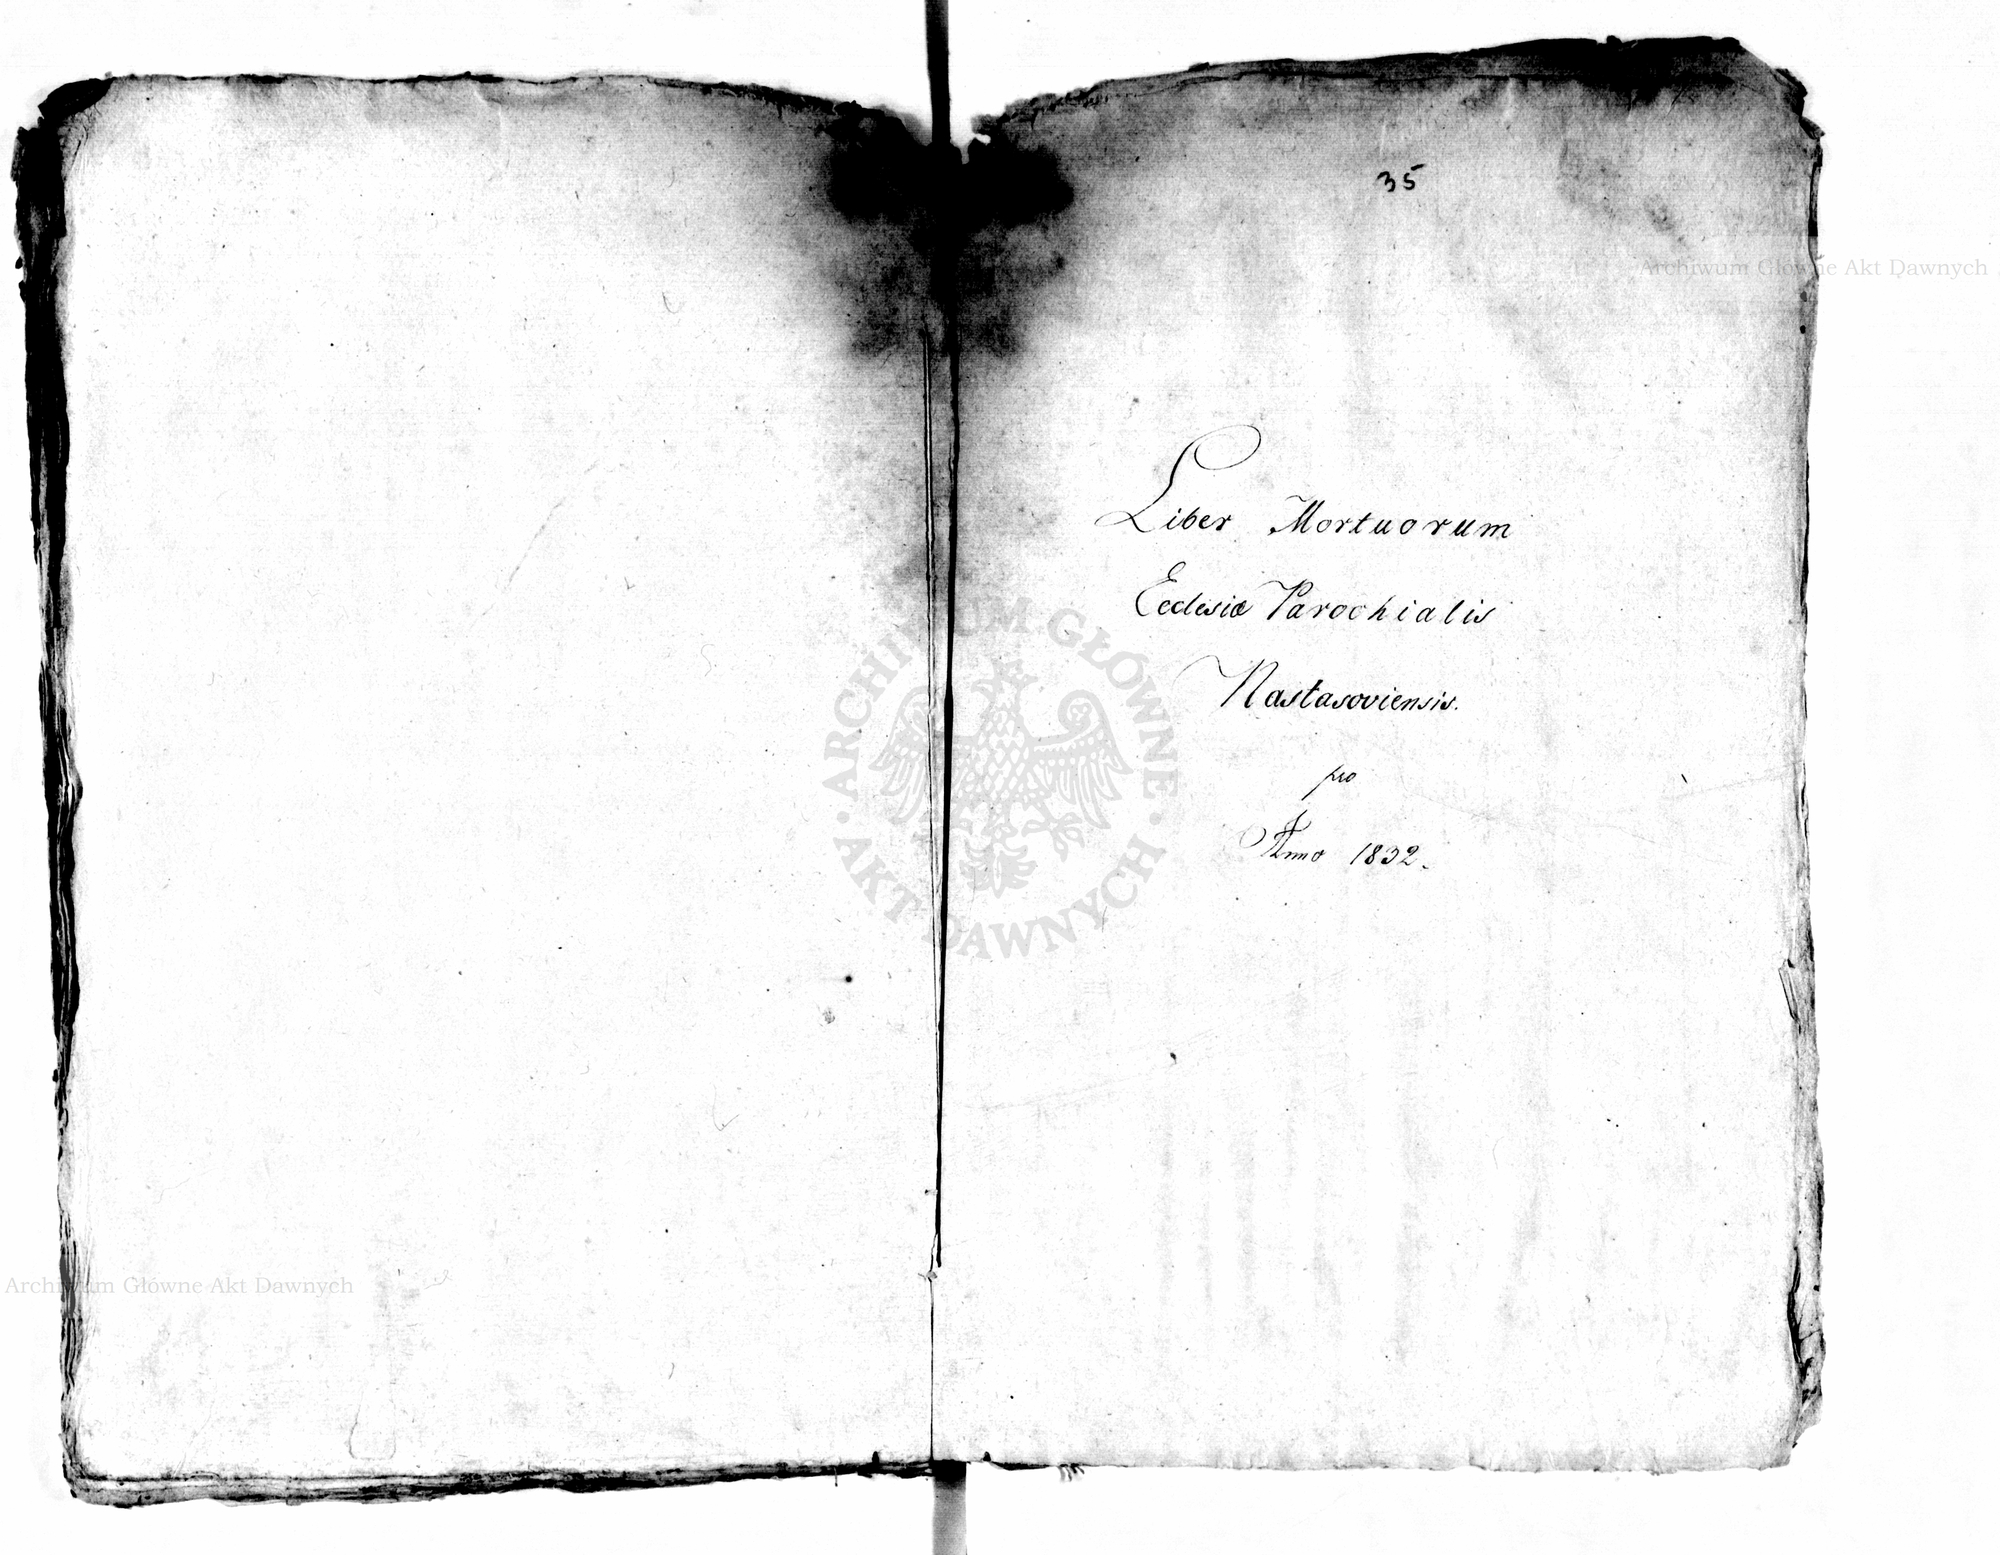 35
Archiwum Główne Akt Dawnych
Liber Mortuorum
Ecclesiæ Parochialis
Nastasoviensis.
pro
Anno 1832.
ARCHIWUM GŁÓWNE
AKT DAWNYCH
Archiwum Główne Akt Dawnych